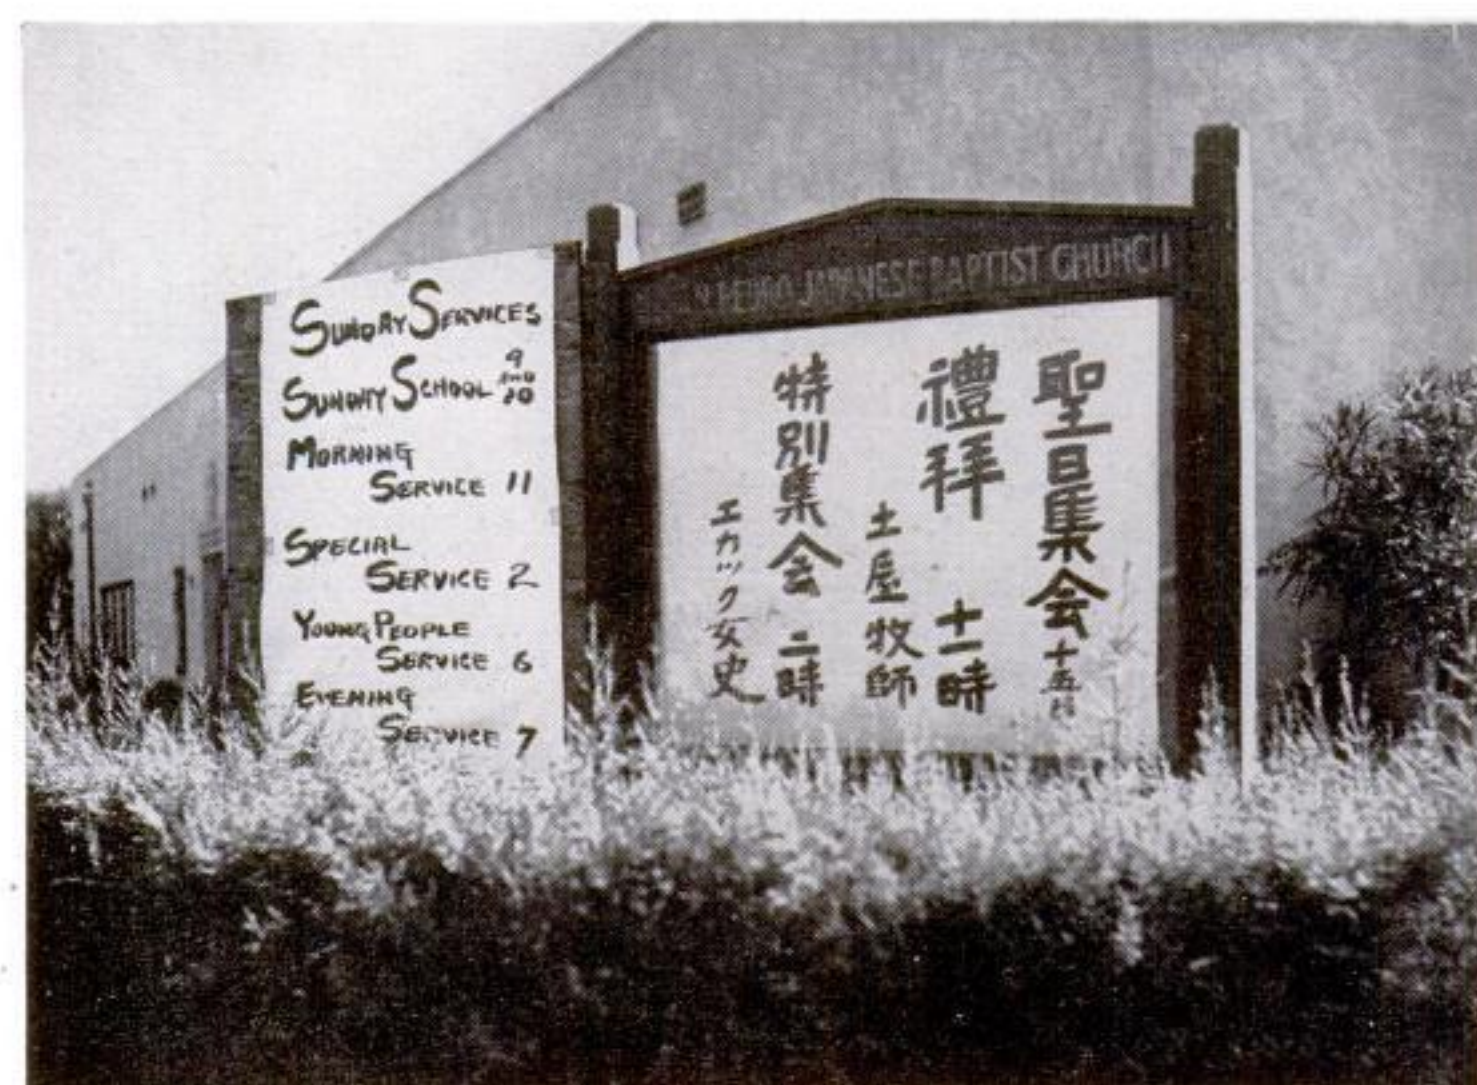 SUNDAY SERVICES
SUNDAY SCHOOL 9 AND 10
MORNING
SERVICE 11
SPECIAL
SERVICE 2
YOUNG PEOPLE
SERVICE 6
EVENING
SERVICE 7
PEDRO JAPANESE BAPTIST CHURCH
聖日集会 十五日
禮拜 十一時
土屋牧師
特別集会 二時
エカック女史